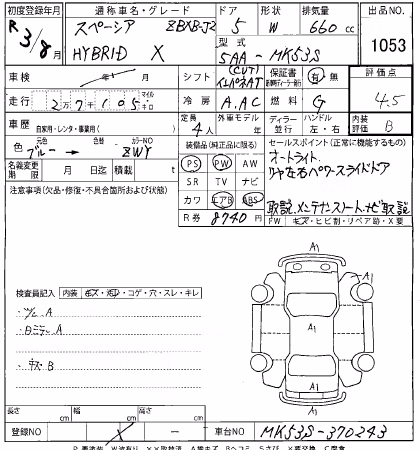 初度登録年月 通称車名・グレード ドア 形状 排気量 出品NO
R 3/8月 スペーシア ZBXB-J2 5 W 660 cc 1053
HYBRID X 型式 5AA-MK53S
車検 年 月 シフト (CVT) インパネAT 保証書 有 無 評価点
走行 2万7千105 マイル キロ 冷房 A.AC 燃料 G 4.5
車歴 自家用・レンタ・事業用( ) 定員 4人 外車モデル 年 ディーラー 並行 ハンドル 左・右 内装評価 B
色 元色 ブルー → 色替 カラーNO ZWY 装備品(純正品に限る) セールスポイント(正常に機能するもの)
名義変更期限 月 日迄 積載 t PS PW AW オートライト
注意事項(欠品・修復・不具合箇所および状態) SR TV ナビ 両左右パワースライドドア
カワ エアB ABS 取説、メンテナンスノート、ナビ取説
R券 8740 円 FW キズ・ヒビ割・リペア跡・X要
検査員記入 内装 キズ・汚・コゲ・穴・スレ・キレ
A1
A1
A1
A1
A1
A
Bミラー A
キズ・B
長さ cm 幅 cm 高さ cm
登録NO 車台NO MK53S-370243